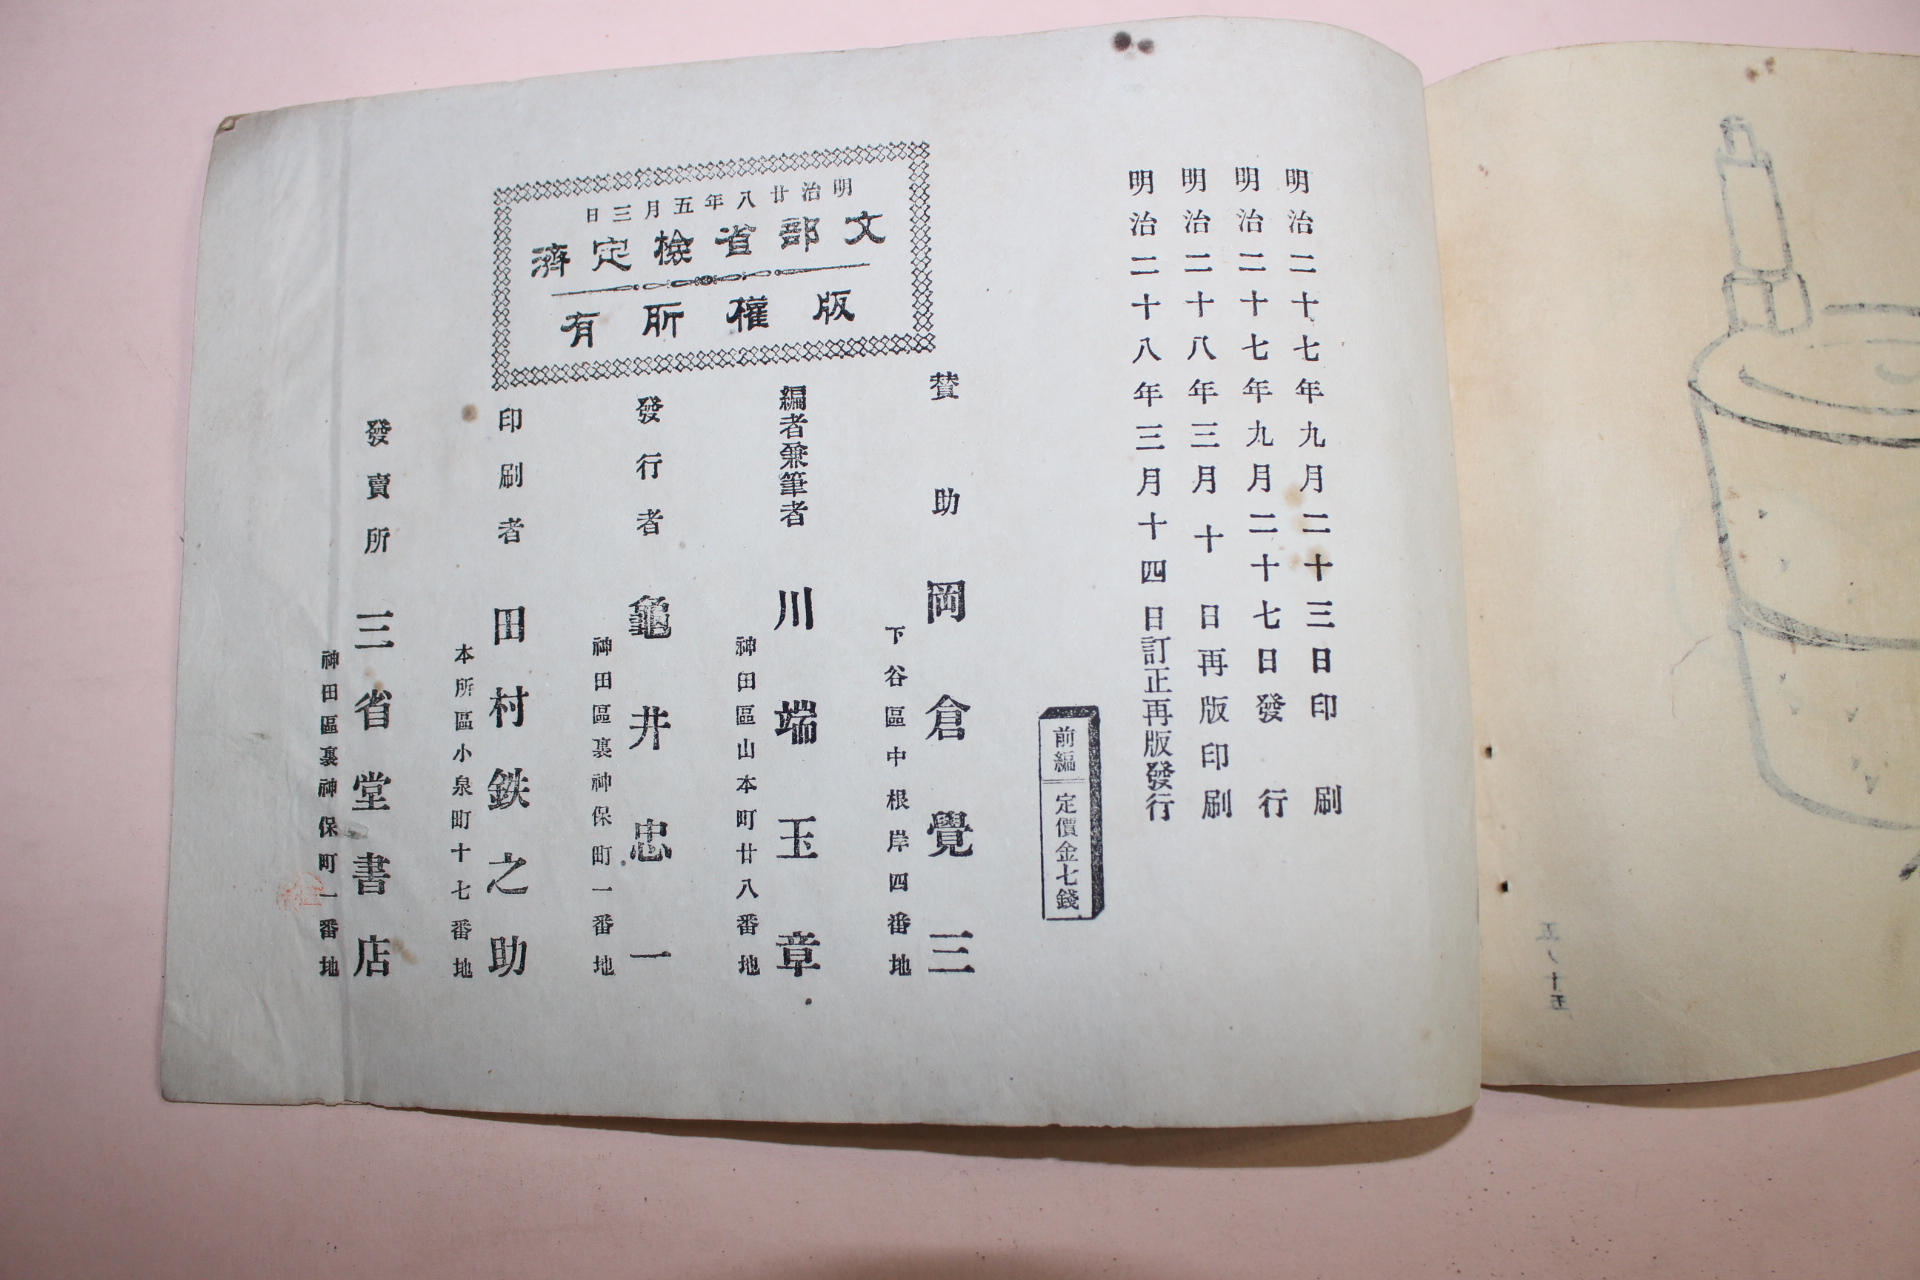 明治二十七年九月二十三日印刷
明治二十七年九月二十七日發行
明治二十八年三月十日再版印刷
明治二十八年三月十四日訂正再版發行
前編 定價金七錢
明治廿八年五月三日
文部省檢定濟
版權所有
賛助 岡倉覺三
下谷區中根岸四番地
編者兼筆者 川端玉章
神田區山本町廿八番地
發行者 龜井忠一
神田區裏神保町一番地
印刷者 田村鉄之助
本所區小泉町十七番地
發賣所 三省堂書店
神田區裏神保町一番地
五ノ十五